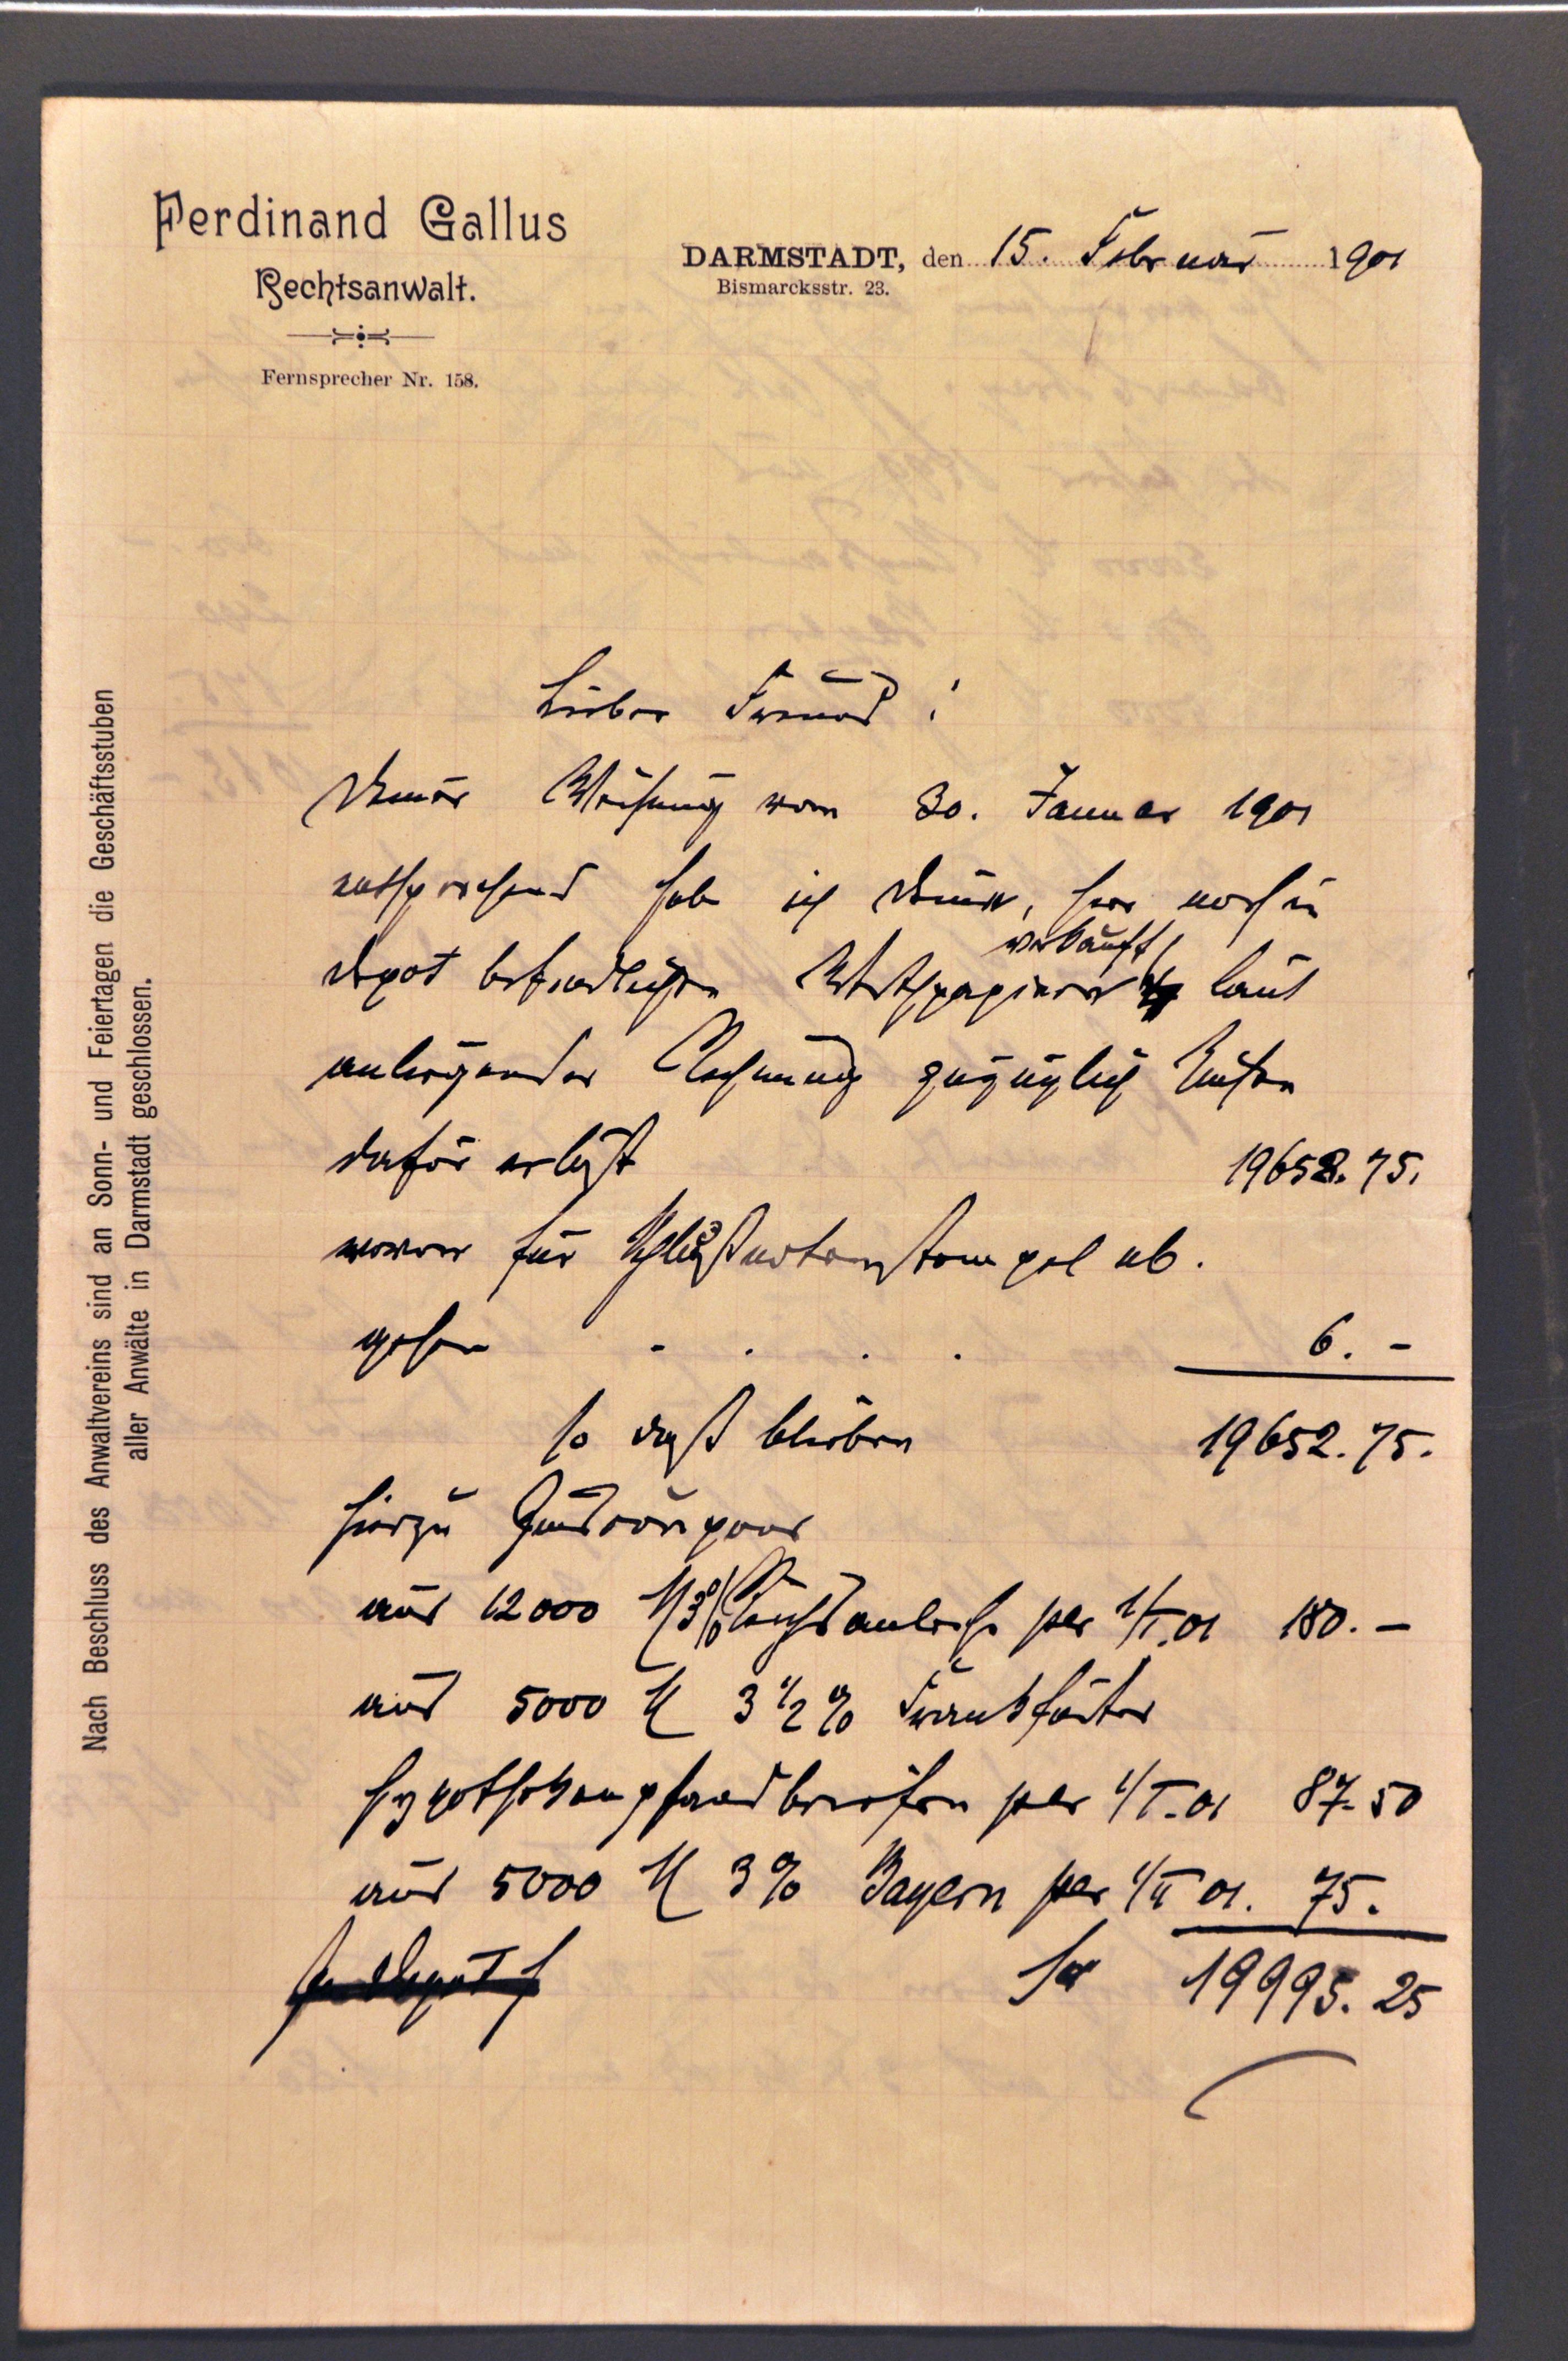 Ferdinand Gallus
Rechtsanwalt.
Fernsprecher Nr. 158.
DARMSTADT, den 15. Februar 1901
Bismarcksstr. 23.
Nach Beschluss des Anwaltvereins sind an Sonn- und Feiertagen die Geschäftsstuben
aller Anwälte in Darmstadt geschlossen.
Lieber Freund!
Deiner Weisung vom 30. Januar 1901
entsprechend habe ich Deine, hier noch in
Depot befindlichen Werthpapiere verkauft laut
anliegender Rechnung zuzüglich Zinsen
dafür erlöst 19658.75.
wovon für Schlußnotenstempel ab-
gehen - . . . 6. -
so daß bleiben 19652.75.
hierzu Zinscoupons
aus 12000 M 3% Reichsanleihe per 1/I.01 180. -
aus 5000 M 3 1/2 % Frankfurter
Hypothekenpfandbriefen per 1/I.01 87.50
aus 5000 M 3% Bayern per 1/II 01. 75.
Sa 19995.25